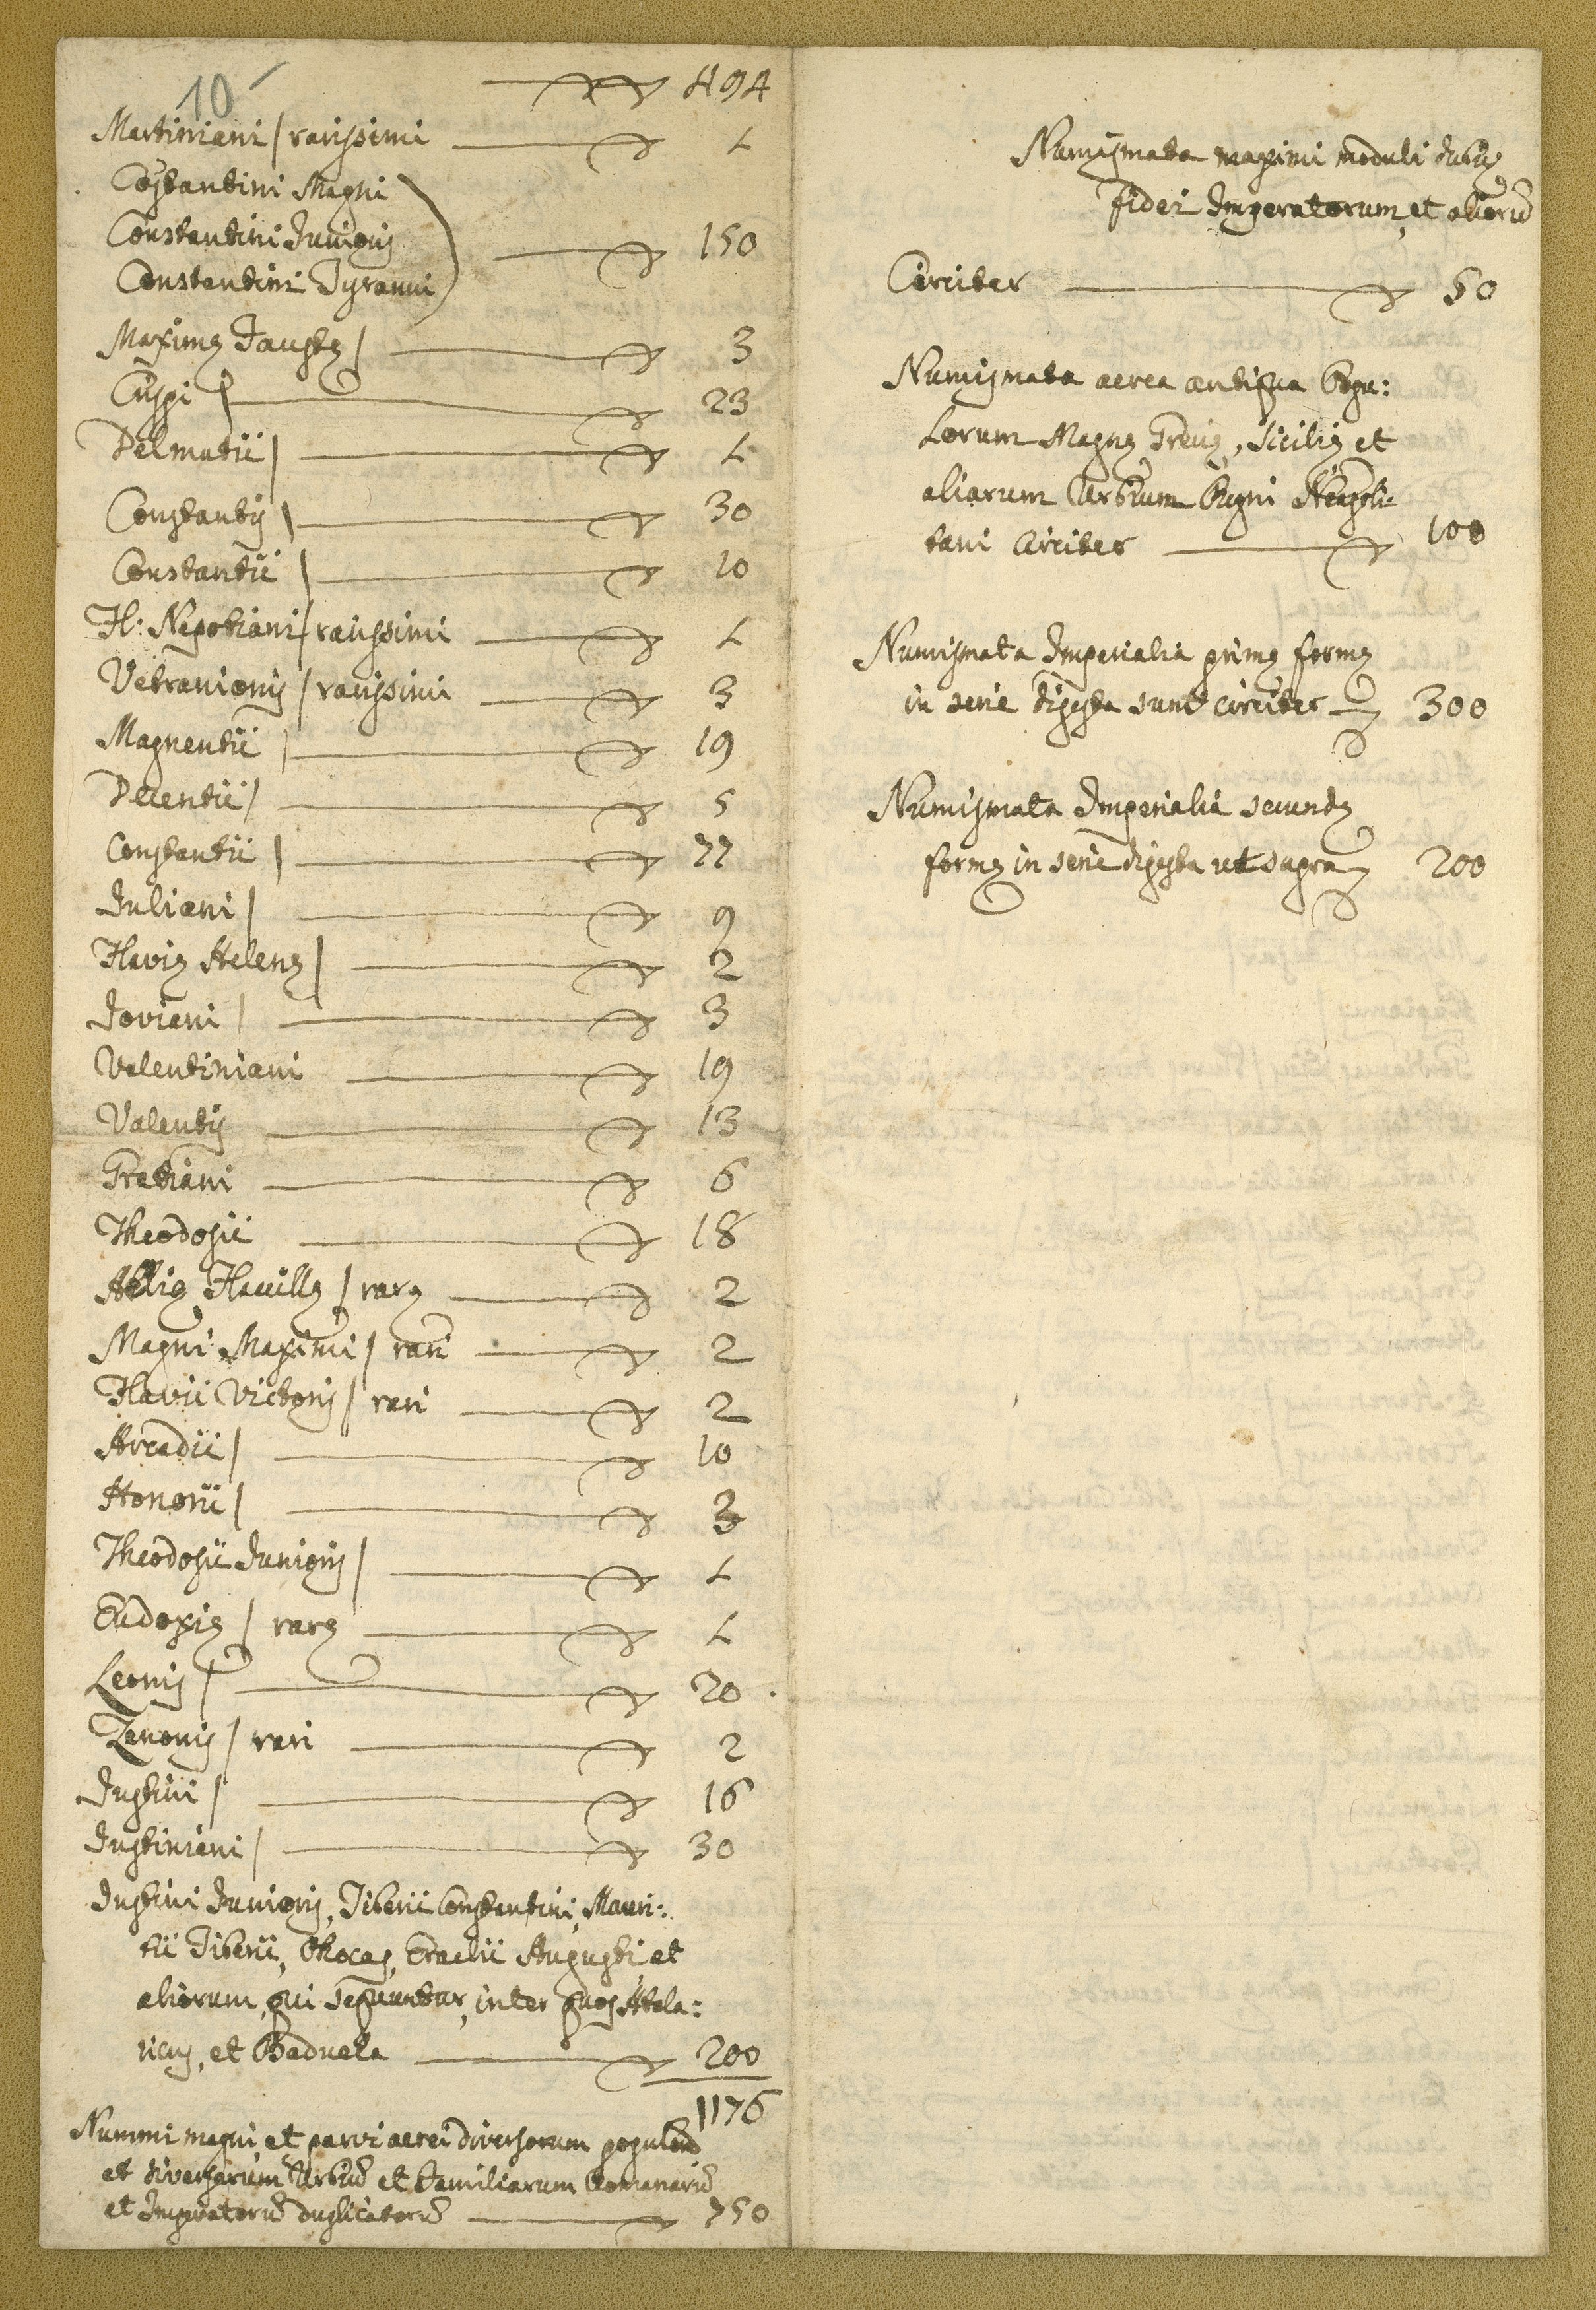 10
494
Martiniani / rarissimi 1
Cōstantini Magni
Constantini Junioris 150
Constantini Tyranni
Maximę Faustę / 3
Crispi / 23
Delmatii / 1
Constantis / 30
Constantii / 10
Fl: Nepotiani / rarissimi 1
Vetranionis / rarissimi 3
Magnentii / 19
Decentii / 5
Constantii / 77
Juliani / 9
Flavię Helenę / 2
Joviani / 3
Valentiniani 19
Valentis 13
Gratiani 6
Theodosii 18
Aelię Flacillę / rarę 2
Magni Maximi / rari 2
Flavii Victoris / rari 2
Arcadii / 10
Honorii / 3
Theodosii Junioris / 1
Eudoxię / rarę 1
Leonis / 20
Zenonis / rari 2
Justini / 16
Justiniani / 30
Justini Junioris, Tiberii Constantini, Mauri:
tii Tiberii, Phocas, Eraclii Augusti, et
aliorum, qui sequuntur, inter quos Atala:
ricus, et Baduela 200
1176
Nummi magni et parvi aerei diversorum populorū
et diversarum Urbiū et Familiarum Romanarū
et Imperatorū duplicatorū 750
Numismata maximi moduli dubię
fidei Imperatorum, et aliorū
Circiter 50
Numismata aerea antiqua Popu:
lorum Magnę Grecię, Sicilię et
aliarum Urbium Regni Neapoli:
tani circiter 100
Numismata Imperialia primę formę
in serie digesta sunt circiter 300
Numismata Imperialia secundę
formę in serie digesta ut supra 200